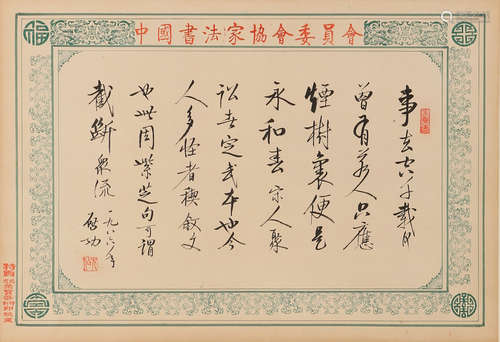 中國書法家協會委員會
事去千載
曾有若人只應
煙樹裏便是
永和春 宋人聚
訟者定武本也今
人多怪者禊敘文
也此用紫芝句可謂
截斷衆流
一九八六年
啟功